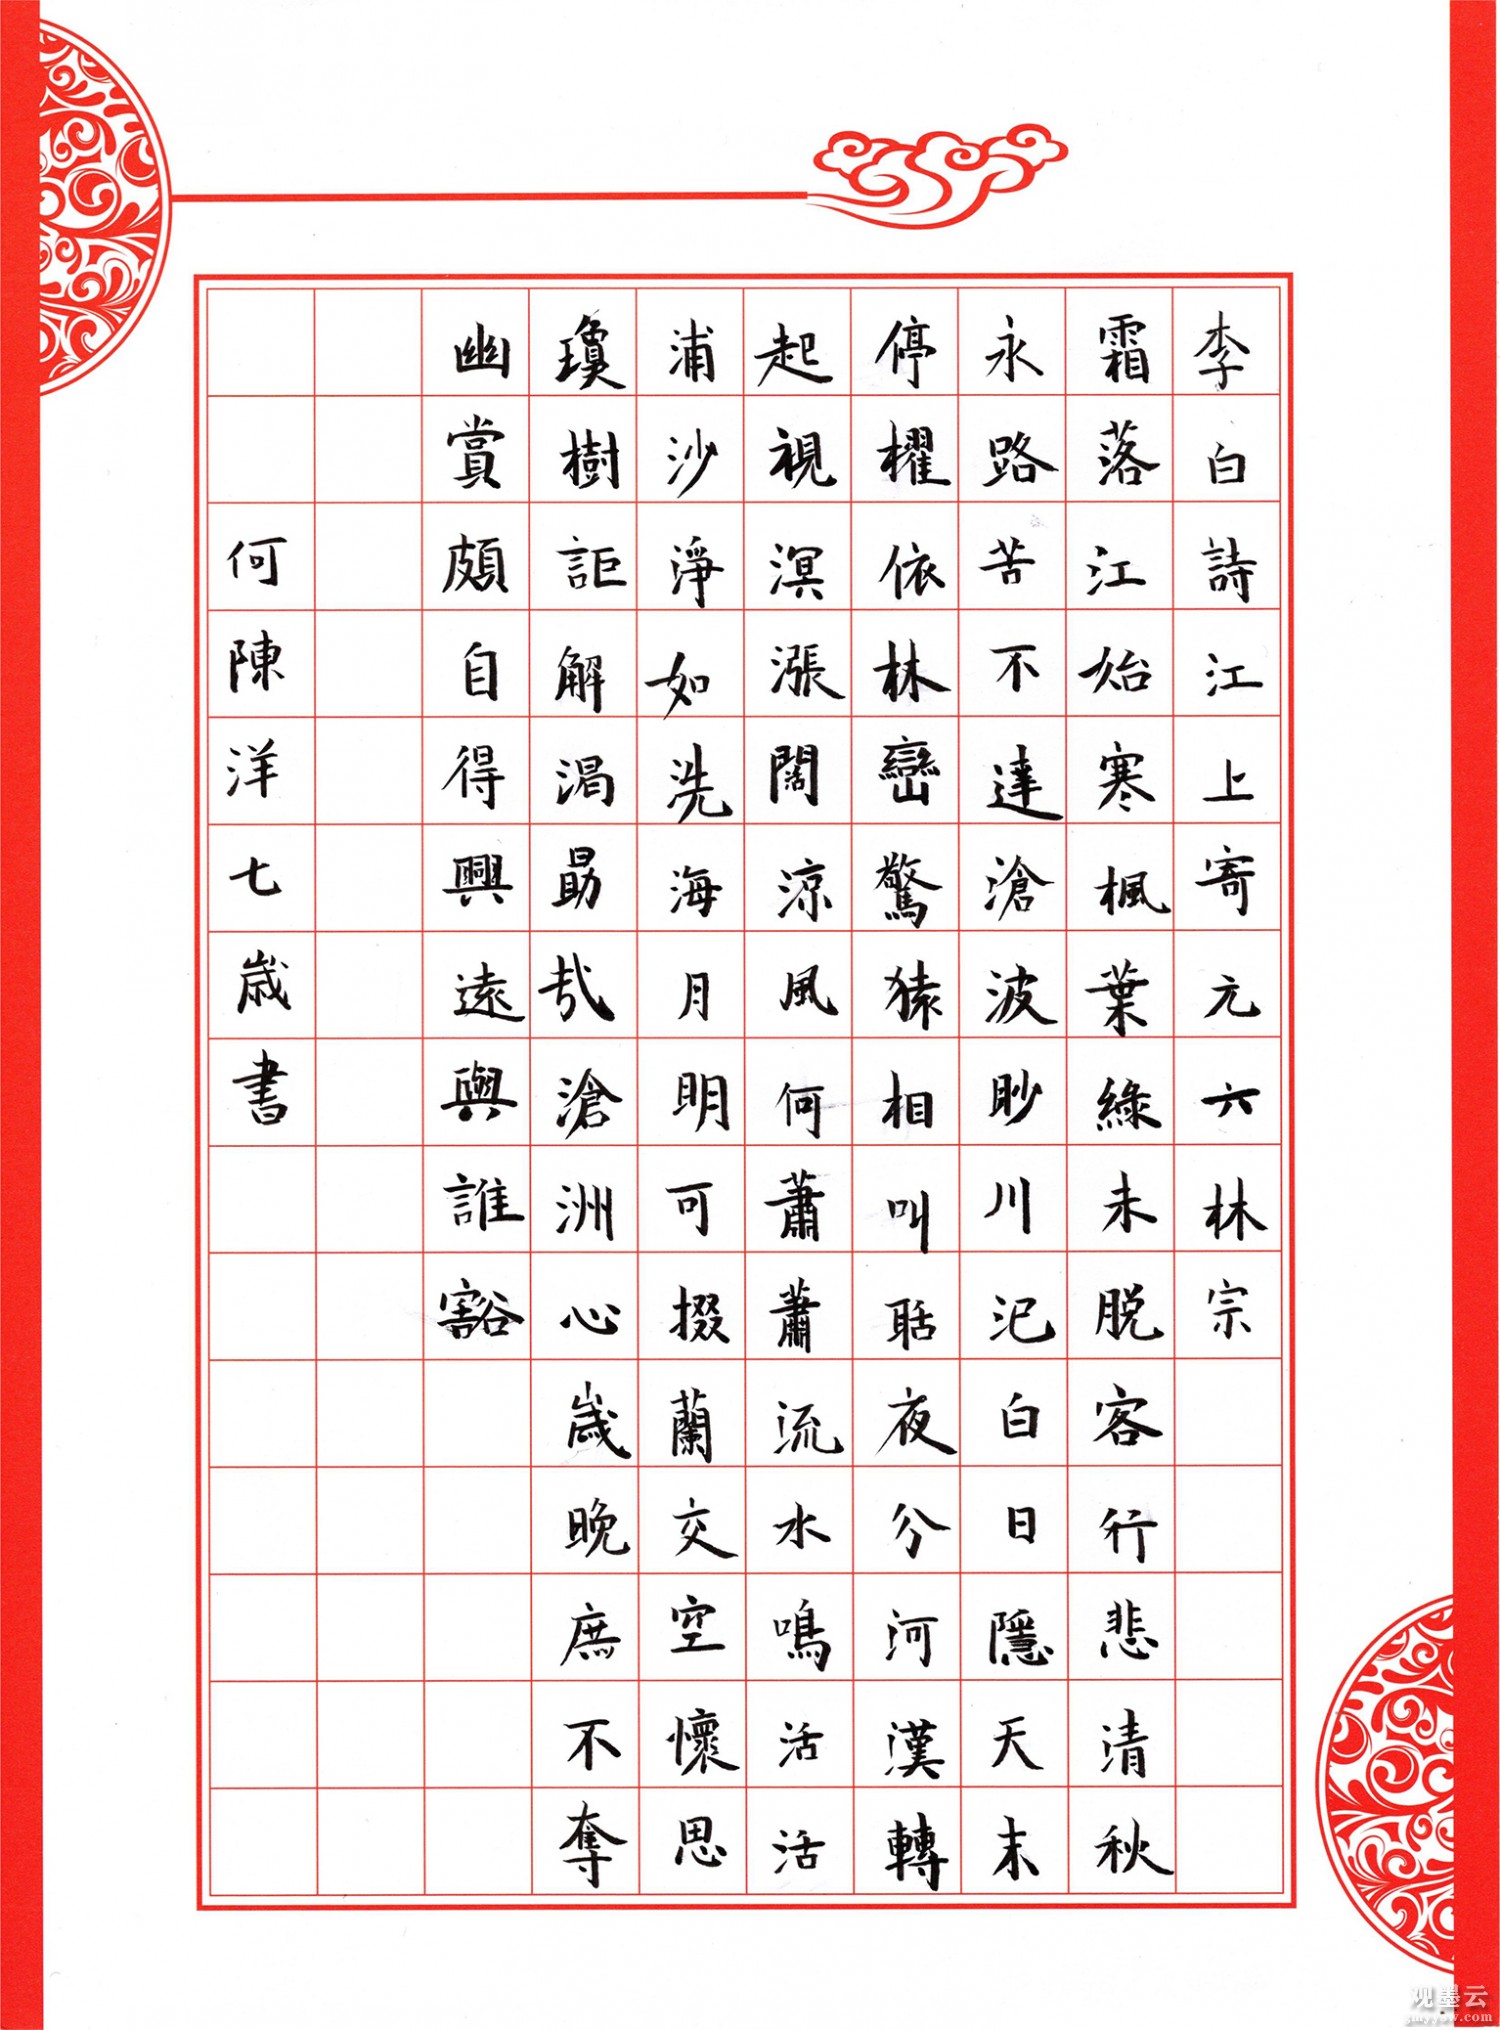 李白詩江上寄元六林宗
霜落江始寒楓葉綠未脱客行悲清秋
永路苦不達滄波眇川汜白日隱天末
停櫂依林巒驚猿相叫聒夜分河漢轉
起視溟漲闊涼風何蕭蕭流水鳴活活
浦沙淨如洗海月明可掇蘭交空懷思
瓊樹詎解渴勗哉滄洲心歲晚庶不奪
幽賞頗自得興遠與誰豁
何陳洋七歲書
观墨云
gmyyow.com